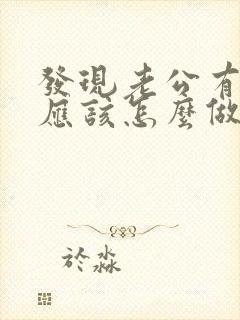 發現老公有
應該怎麼做
於淼